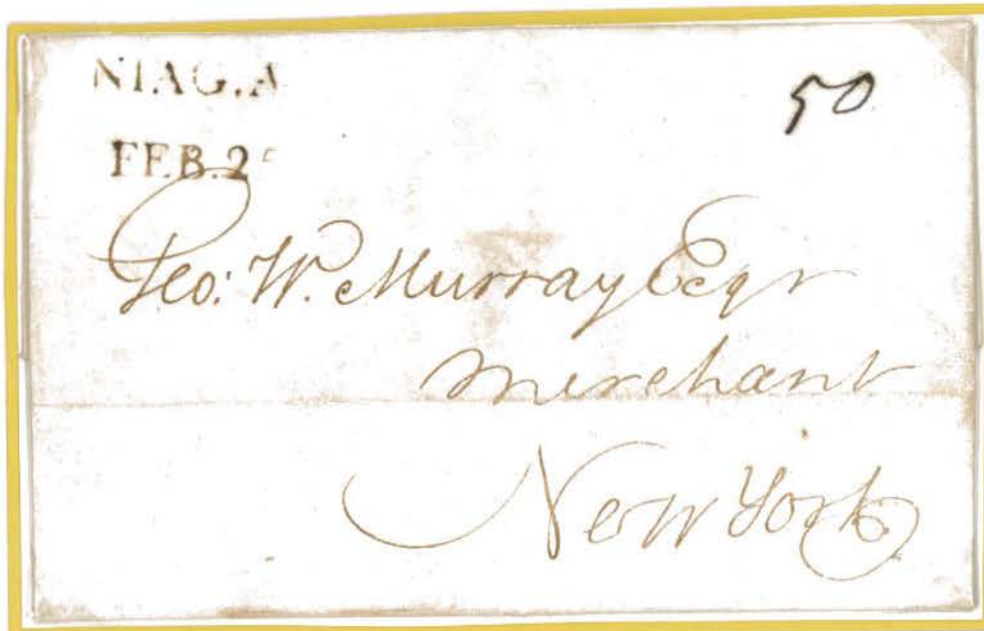 NIAG.A
50
FEB.25
Geo: W. Murray Esqr
Merchant
New York